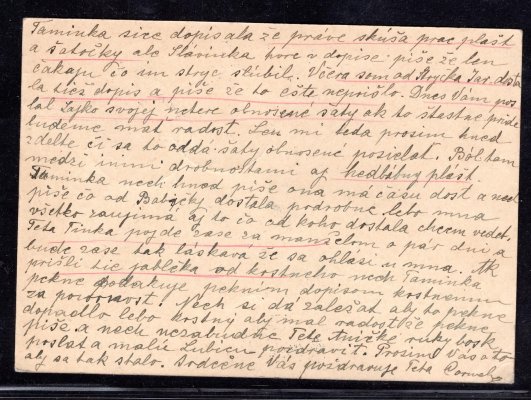 Taminka sice dopisala že práve skúša prac plášť
a šatočky ale Slávinka hore v dopise píše že len
čakajú čo im stryc slúbil. Včera som od Strycka Jar. dosta
la tiež dopis a píše že to ešte neprišlo. Dnes Vám pos
lal Lajko svojej netere obnosené šaty ak to šťastne príde
budeme mať radosť. Len mi teda prosím hneď
zdelte či sa to oddá šaty obnosené posielať. Ból tam
medzi inimi drobnostami aj hedbábny plášť
Taminka nech hneď píše ona má času dosť a nech
píše čo od Babičky dostala podrobne lebo mna
všetko zaujímá aj to čo od koho dostala chcem vedeť.
Teta Tinka pojde zase za manželom o pár dní a
bude zase tak láskavá že sa ohlási u mna. Ak
prišli tie jablčka od kostneho nech Taminka
pekne podakuje pekným dopisom kostnemu
za pozornosť. Nech si dá záležať aby to pekne
dopadlo lebo kostný aby mal radosť že pekne
píše a nech nezabudne Tete Aničke ruky bosk
poslať a malú Lubicu pozdraviť. Prosím Vás o to
aby sa tak stalo. Srdečne Vás pozdravuje Teta